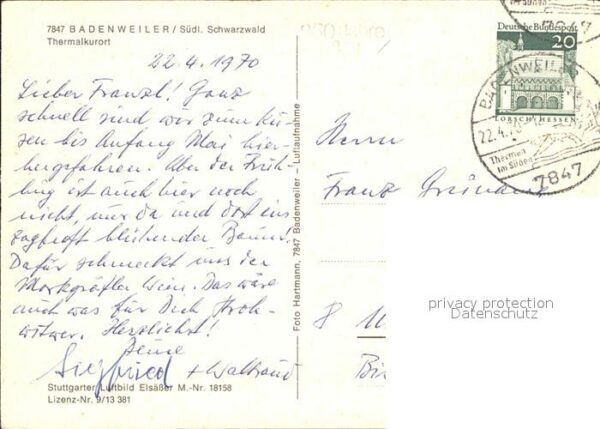 7847 BADENWEILER / Südl. Schwarzwald
Thermalkurort
22.4.1970
Lieber Franzl! Ganz
schnell sind wir zum Ku-
ren bis Anfang Mai hier-
hergefahren. Aber der Früh-
ling ist auch hier noch
nicht, nur da und dort ein
zaghaft blühender Baum!
Dafür schmeckt uns der
Markgräfler Wein. Das wäre
auch was für Dich Stroh-
witwer. Herzlichst!
Deine
Siegfried + Waltraud
Stuttgarter Luftbild Elsäßer M.-Nr. 18158
Lizenz-Nr. 9/13 381
Foto Hartmann, 7847 Badenweiler – Luftaufnahme
Deutsche Bundespost
20
LORSCH/HESSEN
7847
BADENWEILER
22.4.70
Thermen
im Süden
7847
Herrn
Franz
8
privacy protection
Datenschutz